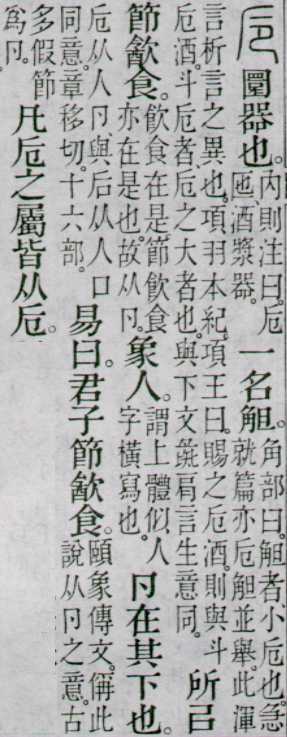 卮 圜器也。内則注曰。卮匜、酒漿器。一名觛。角部曰。觛者、小卮也。急就篇亦卮觛並舉。此渾
言析言之異也。項羽本紀。項王曰。賜之卮酒。則與斗卮酒。斗卮者、卮之大者也。與下文彘肩言生意同。所㠯
節㱃食。飲食在是。節飲食亦在是也。故从卪。象人。謂上體似人字橫寫也。卪在其下也。
卮从人卪。與后从人口同意。章移切。十六部。易曰。君子節㱃食。頤象傳文。偁此說从卪之意。古
多假節爲卪。凡卮之屬皆从卮。